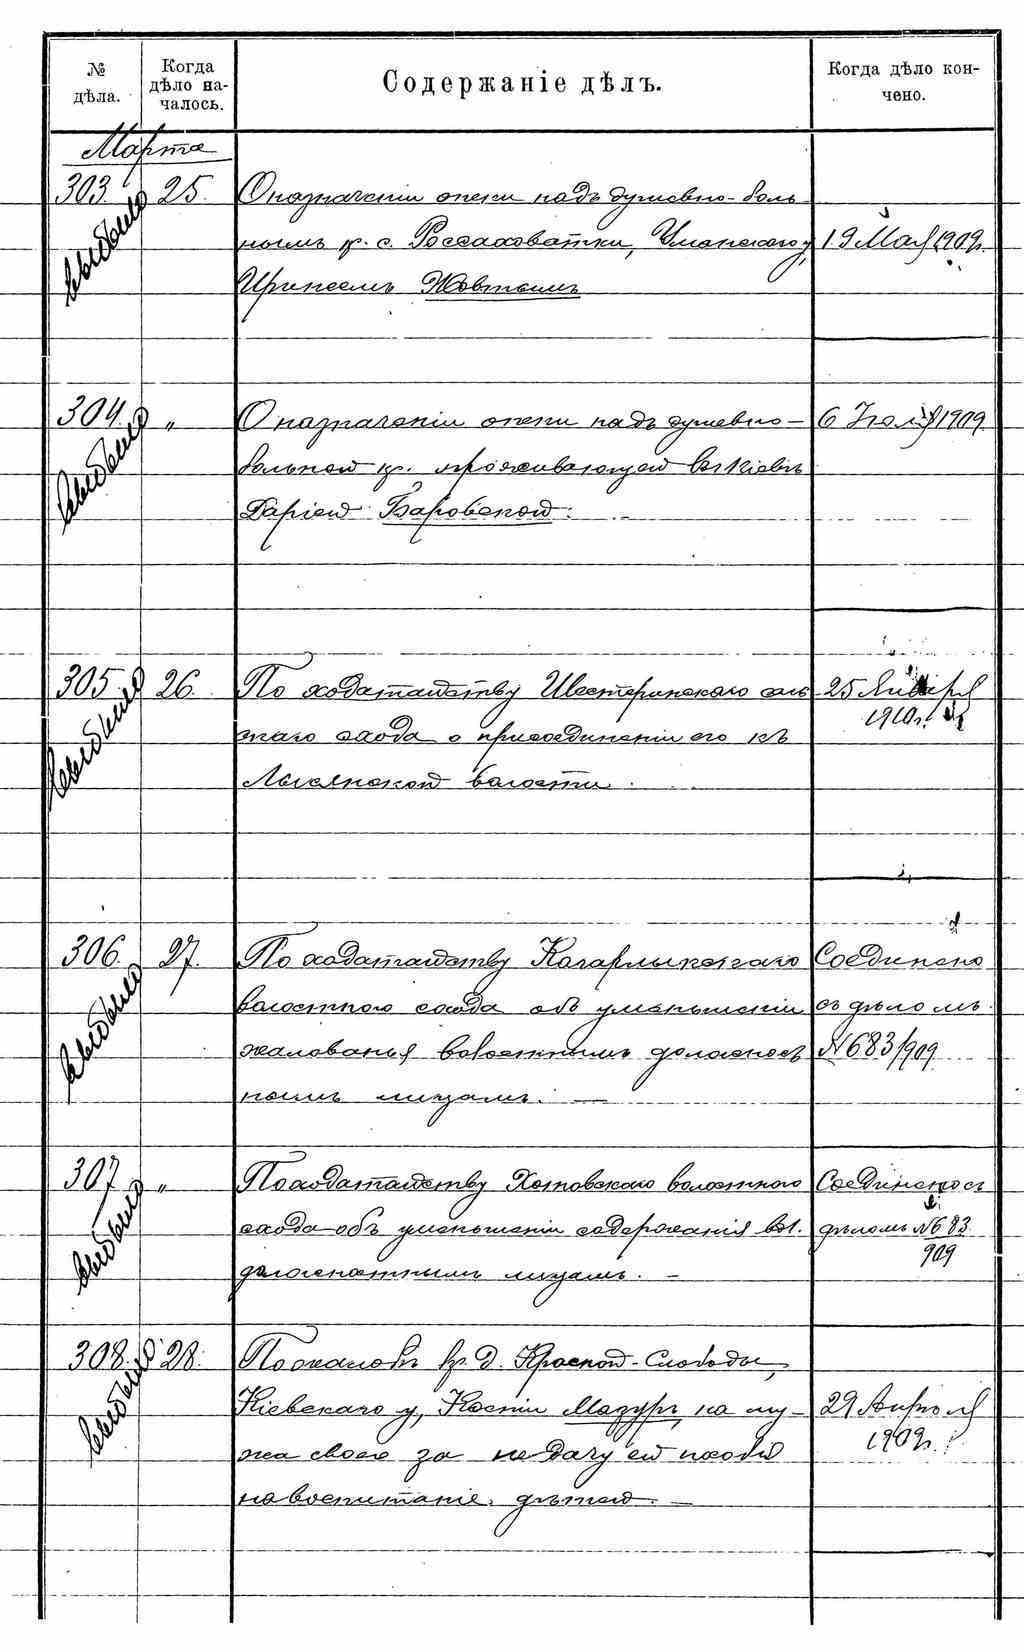 № дѣла.
Когда дѣло началось.
Содержаніе дѣлъ.
Когда дѣло кончено.
Марта
303. 25. О назначеніи опеки надъ душевно-боль-
нымъ кр. с. Россаховатки, Уманскаго у, 19 Мая 1909г.
Жовтымъ
выбыло
304. „ О назначеніи опеки надъ душевно- 6 Іюля 1909
больной кр. проживающей въ г. Кіевѣ
Даріей Баровской.
выбыло
305 26. По ходатайству Шестеринскаго сель- 25 Января
скаго схода о присоединеніи его къ 1910г.
Лысянской волости.
выбыло
306. 27. По ходатайству Кагарлыкскаго Соединено
волостного схода объ уменьшеніи съ дѣломъ
жалованья волостнымъ должност №683/909
нымъ лицамъ. —
выбыло
307 „ По ходатайству Хотовскаго волостного Соединено съ
схода объ уменьшеніи содержанія вол. дѣломъ №683
должностнымъ лицамъ. — 909
выбыло
308. 28. По жалобѣ кр. д. Красной-Слободы,
Кіевскаго у, Ксеніи Мазуръ, на му- 29 Апрѣля
жа своего за недачу ей пособія 1909г.
на воспитаніе дѣтей. —
выбыло